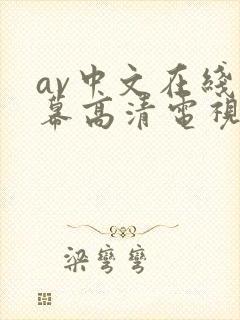 av中文在綫
幕高清電視
梁彎彎